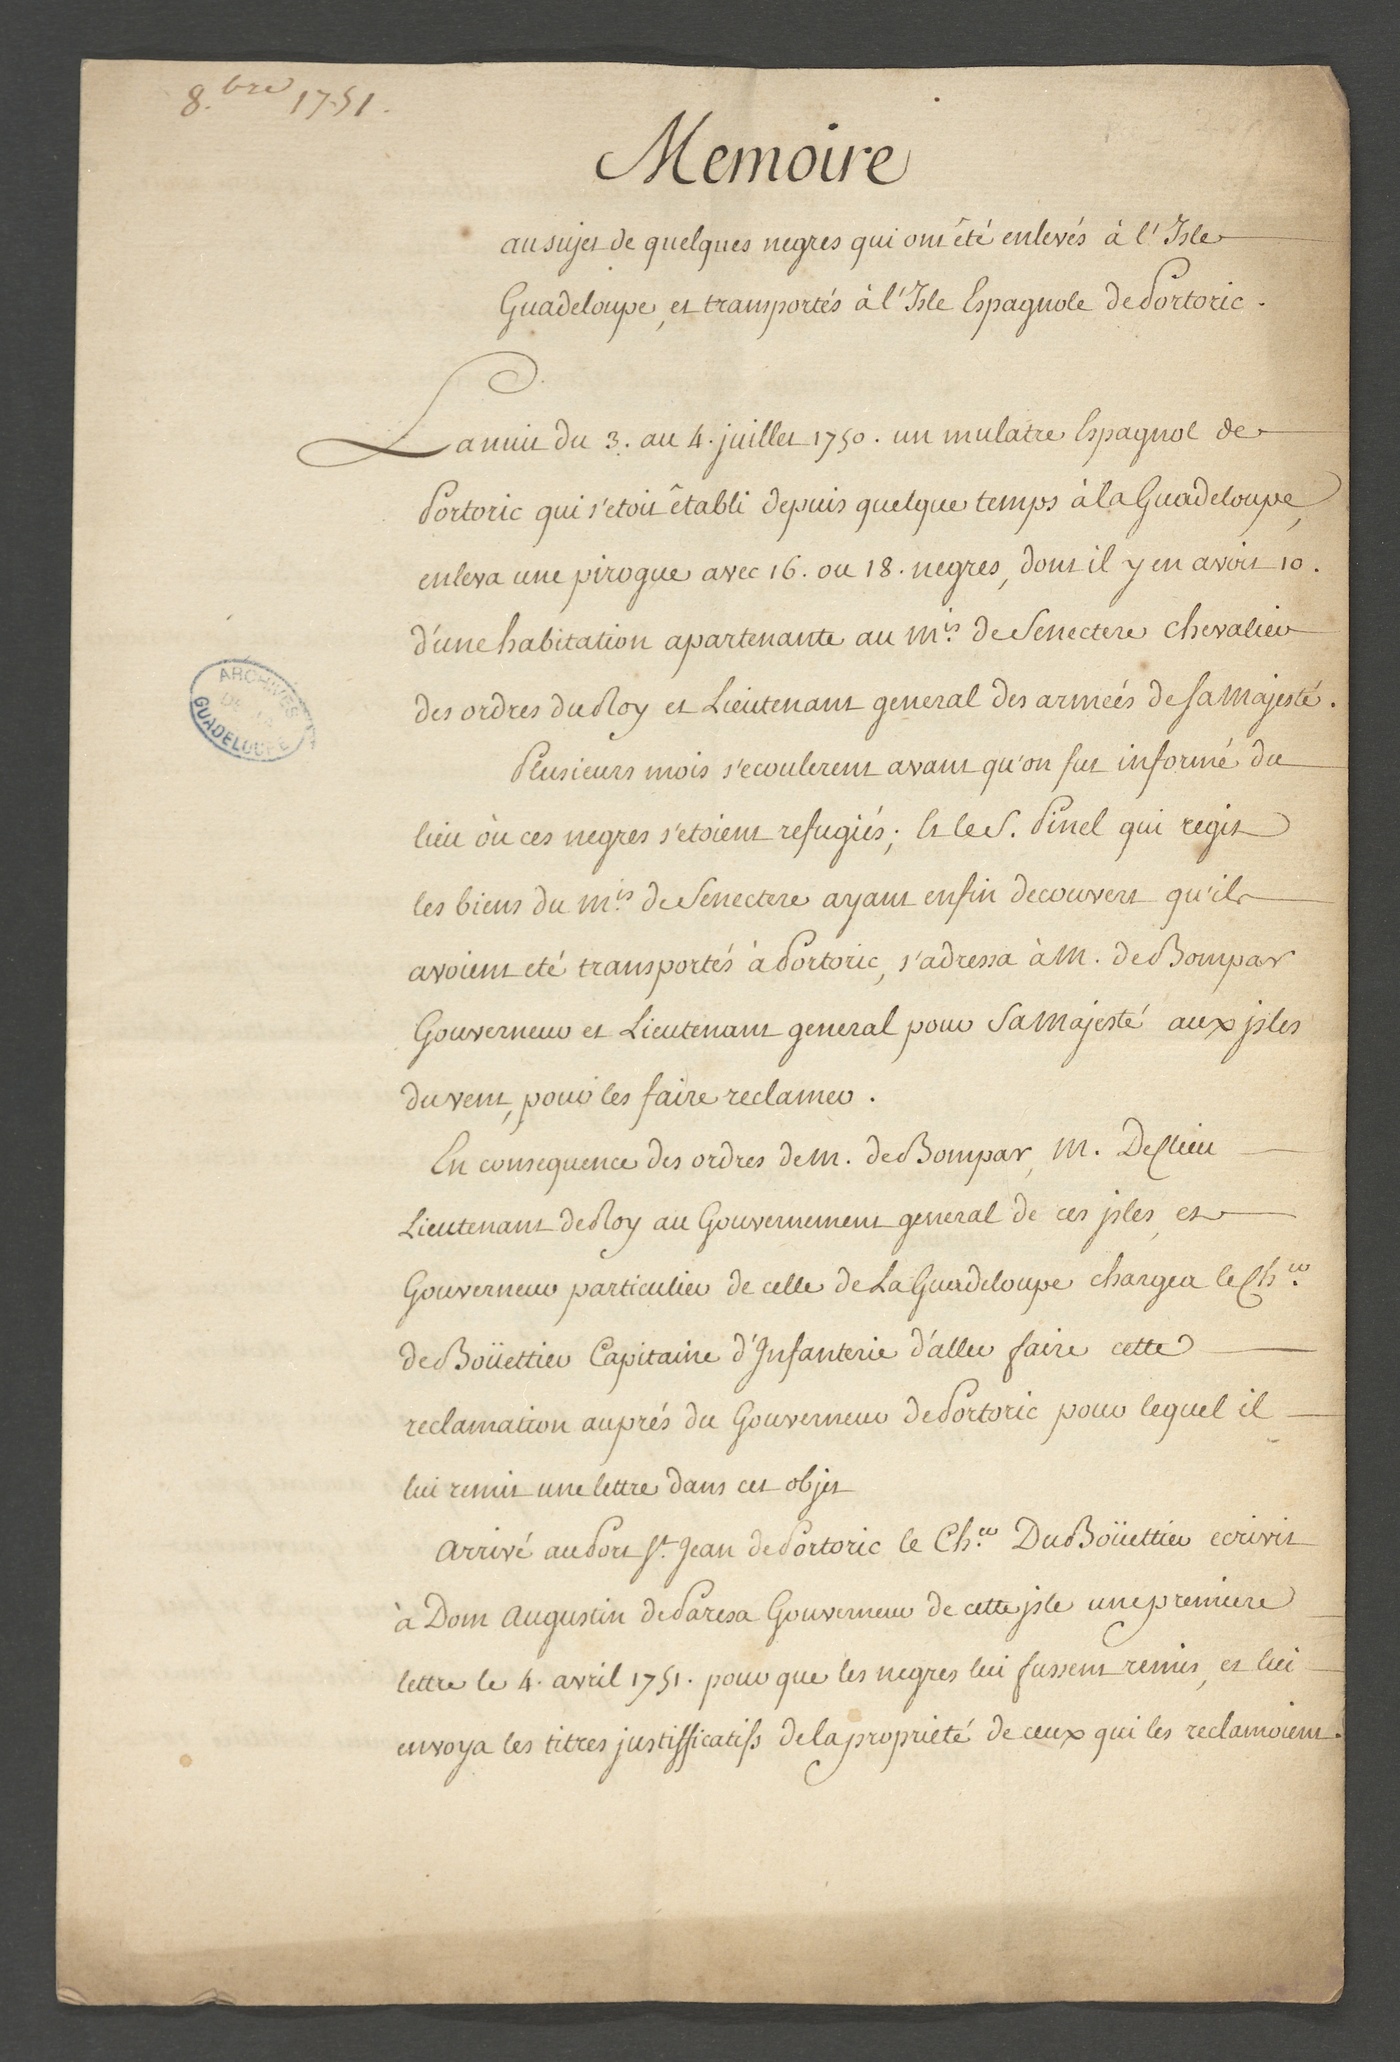 8.bre 1751.
Memoire
au sujet de quelques negres qui ont été enlevés à l'Isle
Guadeloupe, et transportés à l'Isle Espagnole de Portoric.
La nuit du 3. au 4. juillet 1750. un mulatre Espagnol de
Portoric qui s'etoit établi depuis quelque temps à la Guadeloupe,
enleva une pirogue avec 16. ou 18. negres, dont il y en avoit 10.
d'une habitation apartenante au M.is de Senectere chevalier
des ordres du Roy et Lieutenant general des armeés de sa Majesté.
Plusieurs mois s'ecoulerent avant qu'on fut informé du
lieu òu ces negres s'etoient refugiés; Et le S. Pinel qui regit
les biens du M.is de Senectere ayant enfin decouvert qu'ils
avoient eté transportés à Portoric, s'adressa à M. de Bompar
Gouverneur et Lieutenant general pour Sa Majesté aux jsles
du vent, pour les faire reclamer.
En consequence des ordres de M. de Bompar, M. Declieu
Lieutenant de Roy au Gouvernement general de ces jsles, et
Gouverneur particulier de celle de La Guadeloupe chargea le Ch.er
de Boüettier Capitaine d'Infanterie d'aller faire cette
reclamation auprés du Gouverneur de Portoric pour lequel il
lui remit une lettre dans cet objet
Arrivé au Port St. Jean de Portoric le Ch.er Du Boüettier ecrivit
à Dom Augustin de Paresa Gouverneur de cette jsle une premiere
lettre le 4. avril 1751. pour que les negres lui fussent remis, et lui
envoya les titres justifficatifs de la proprieté de ceux qui les reclamoient.
ARCHIVES
DE LA
GUADELOUPE